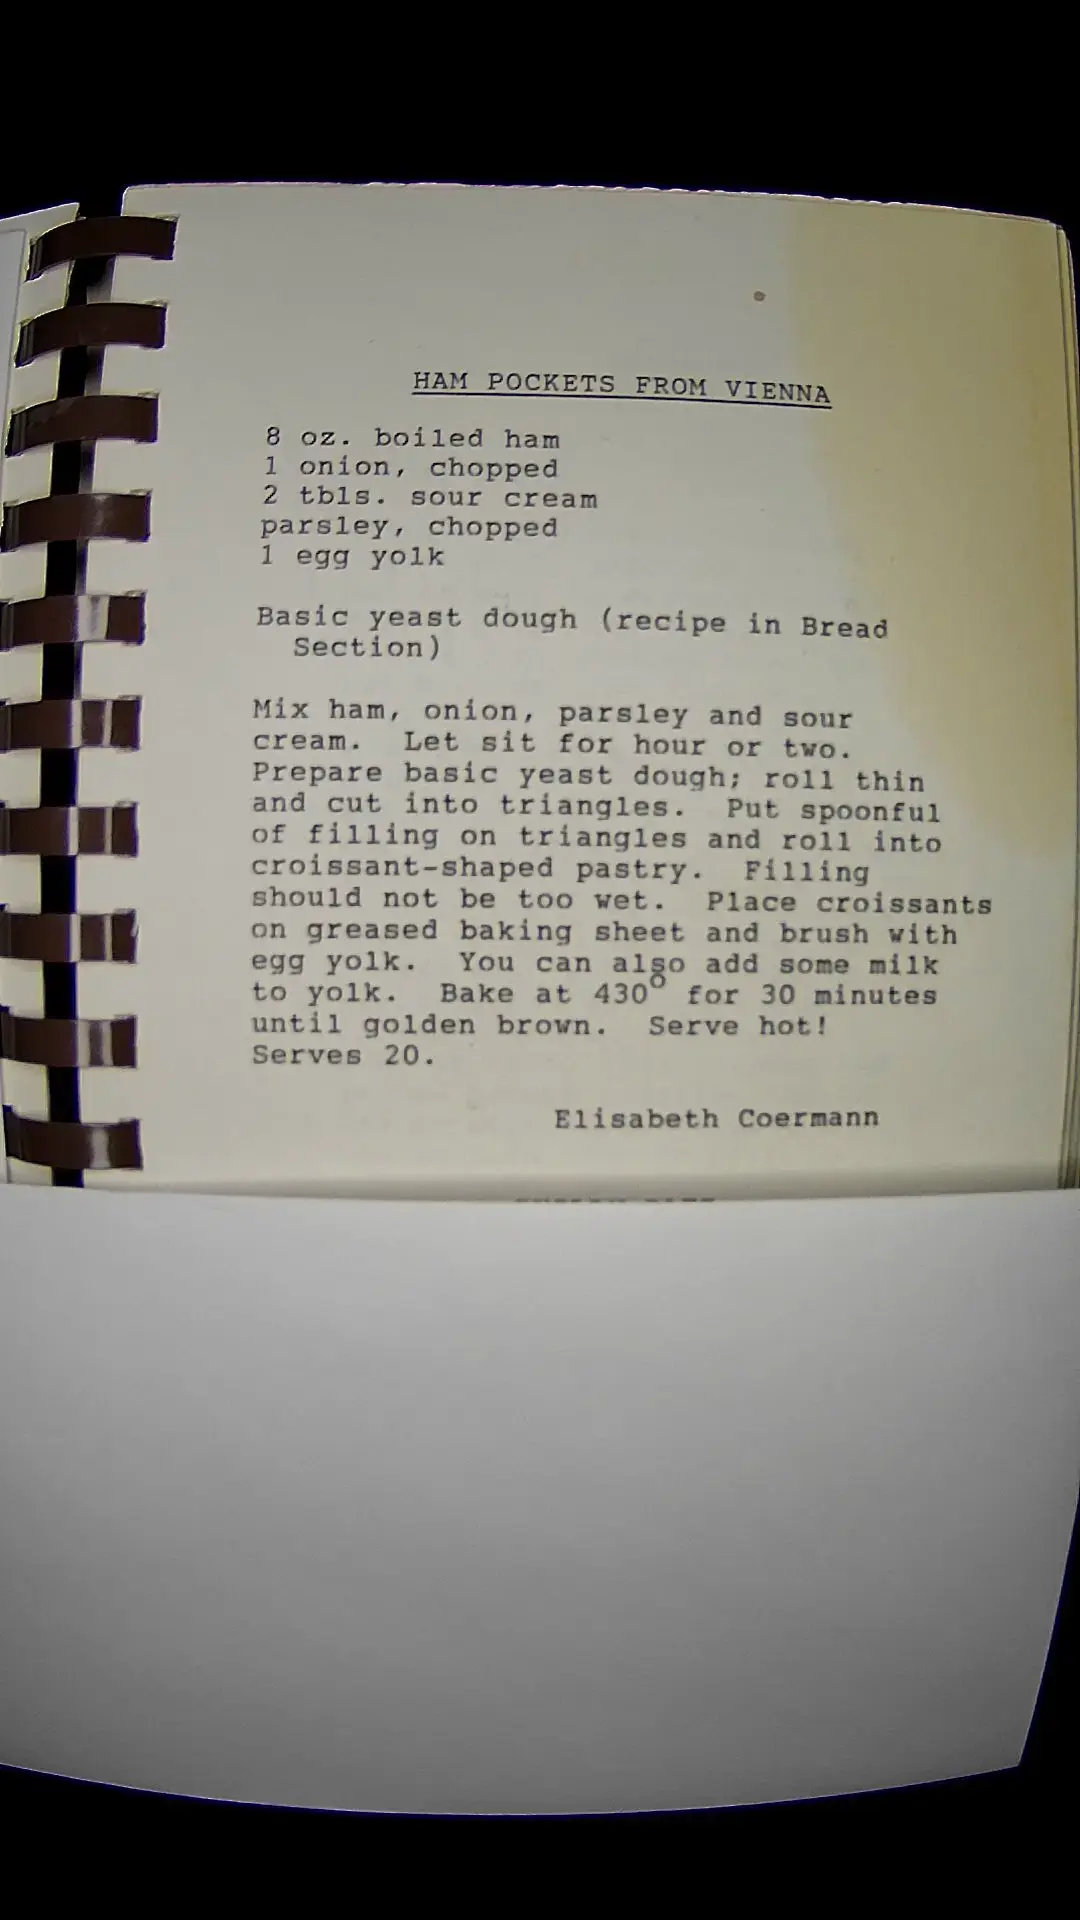 HAM POCKETS FROM VIENNA
8 oz. boiled ham
1 onion, chopped
2 tbls. sour cream
parsley, chopped
1 egg yolk
Basic yeast dough (recipe in Bread
Section)
Mix ham, onion, parsley and sour
cream. Let sit for hour or two.
Prepare basic yeast dough; roll thin
and cut into triangles. Put spoonful
of filling on triangles and roll into
croissant-shaped pastry. Filling
should not be too wet. Place croissants
on greased baking sheet and brush with
egg yolk. You can also add some milk
to yolk. Bake at 430° for 30 minutes
until golden brown. Serve hot!
Serves 20.
Elisabeth Coermann